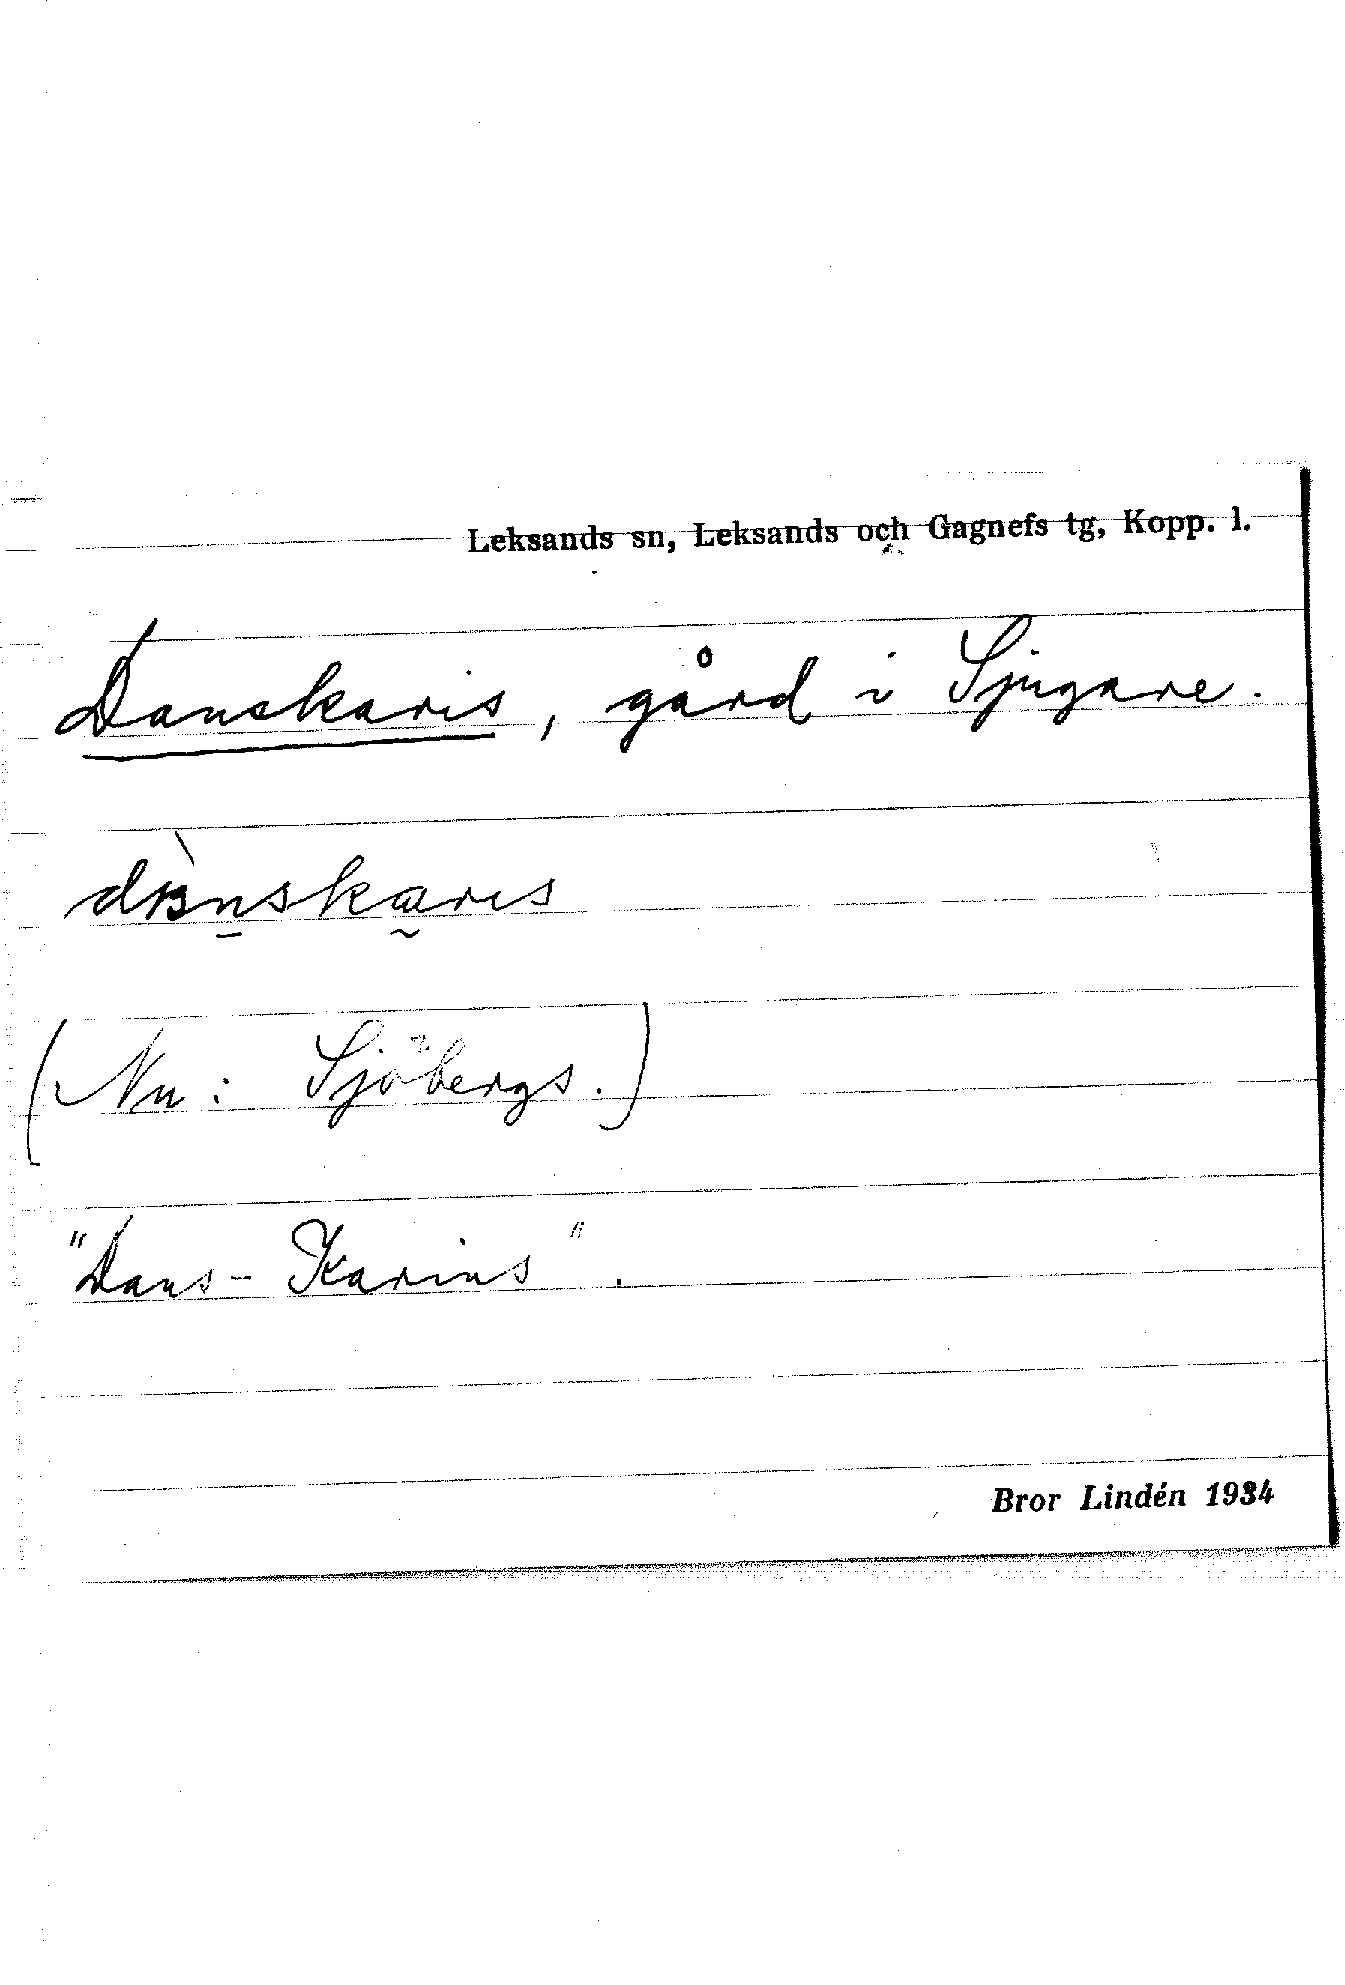 Leksands sn, Leksands och Gagnefs tg, Kopp. l.
Danskaris, gård i Sjugare.
dànskaris
(Nu: Sjöbergs.)
"Dans-Karins".
Bror Lindén 1934